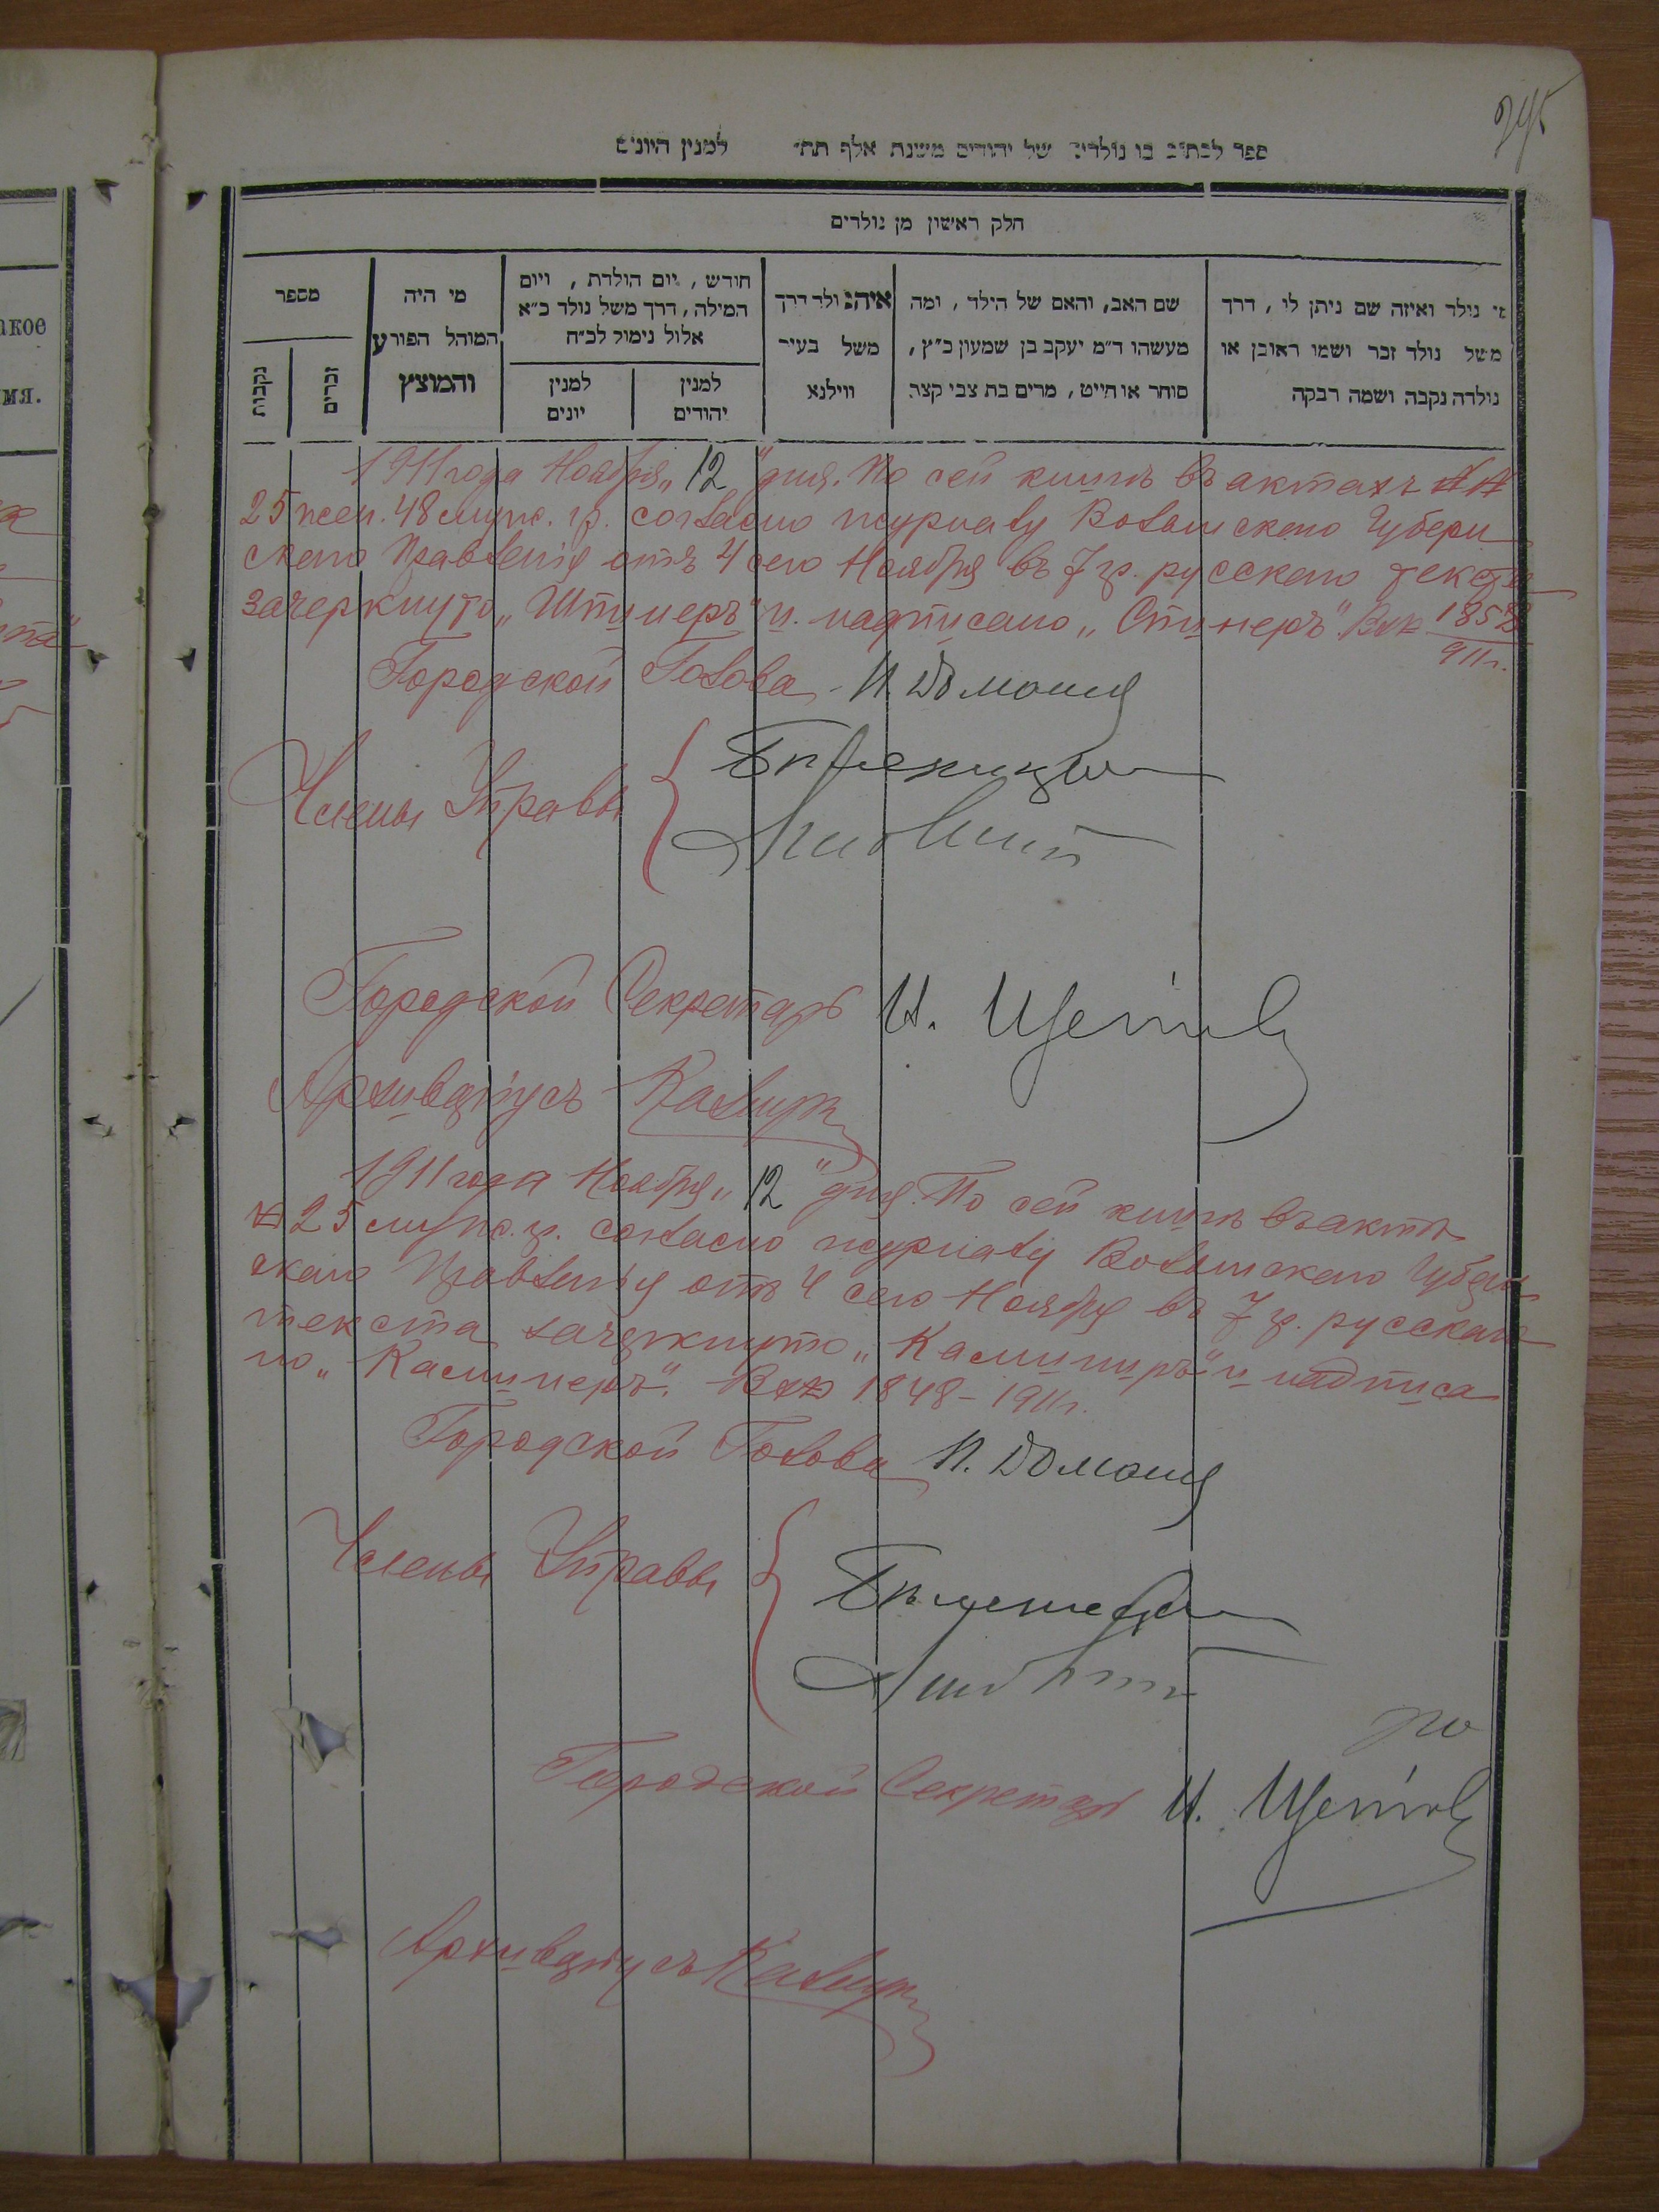 ספר לכתוב בו נולדים של יהודים משנת אלף תת״ למנין היונים
חלק ראשון מן נולדים
מי נולד ואיזה שם ניתן לו, דרך
משל נולד זכר ושמו ראובן או
נולדה נקבה ושמה רבקה
שם האב, והאם של הילד, ומה
מעשהו ד״מ יעקב בן שמעון כ״ץ,
סוחר או חייט, מרים בת צבי קצר.
איה נולד דרך
משל בעיר
ווילנא
חודש, יום הולדת, ויום
המילה, דרך משל נולד כ״א
אלול נימול לכ״ח
למנין
יהודים
למנין
יונים
מי היה
המוהל הפורע
והמוצץ
מספר
זכרים
נקבות
акое
мя.
1911 года Ноября „12" дня. По сей книгѣ въ актахъ №№
25 жен. 48 мужс. гр. согласно журналу Волынскаго Губерн
скаго Правленія отъ 4 сего Ноября въ 7 гр. русскаго текста
зачеркнуто „Штинеръ" и надписано „Стинеръ". Вхд 1858
911 г.
Городской Голова
Члены Управы
Городской Секретарь И.
Архиваріусъ
1911 года Ноября „12" дня. По сей книгѣ въ актѣ
№ 25 мужс. гр. согласно журналу Волынскаго Губерн
скаго Правленія отъ 4 сего Ноября въ 7 гр. русскаго
текста зачеркнуто „Камининръ" и надписа
но „Касминеръ". Вхд 1848 - 1911 г.
Городской Голова
Члены Управы
Городской Секретарь И.
Архиваріусъ